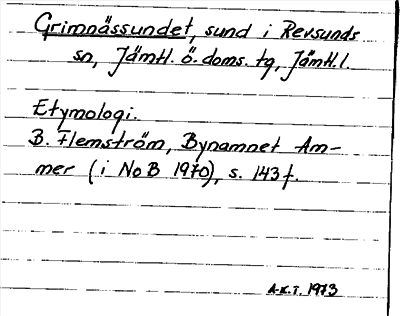 Grimnässundet, sund i Revsunds
sn, Jämtl. ö. doms. tg, Jämtl. l.
Etymologi.
B. Flemström, Bynamnet Am-
mer (i NoB 1970), s. 143 f.
A-K.T. 1973